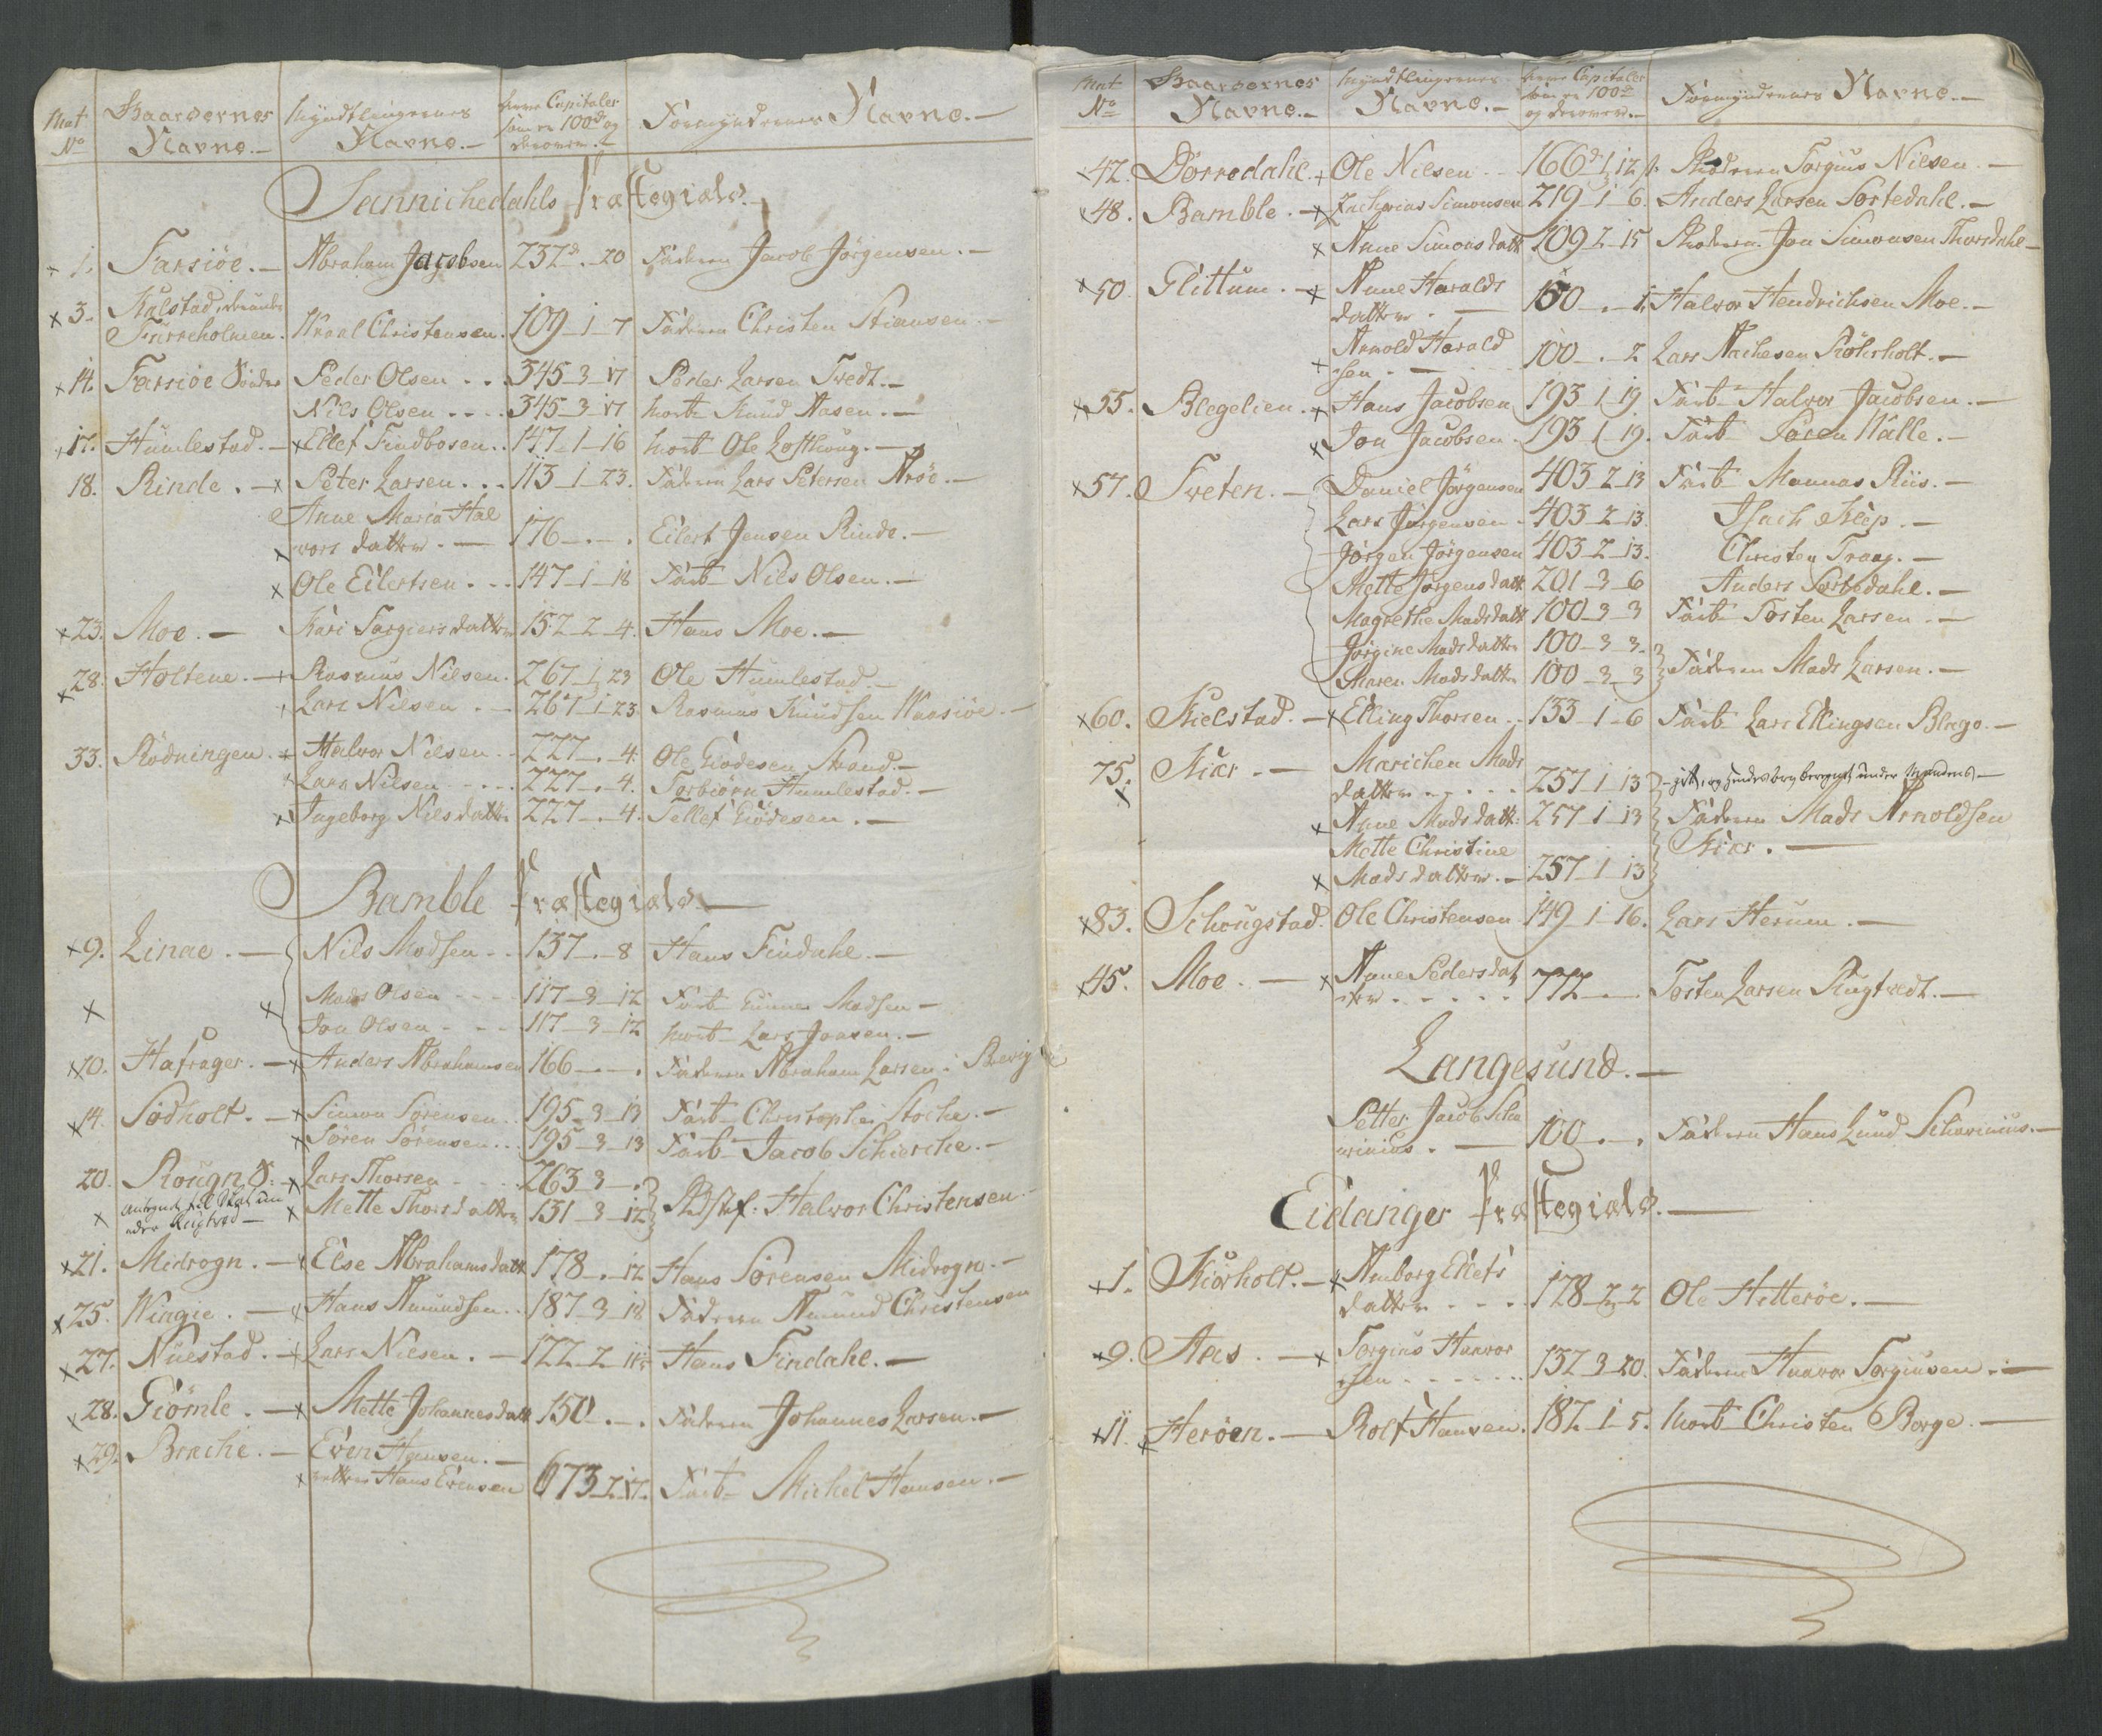 Mat No | Gaardernes Navne.– | Myndtlingernes Navne.– | deres Capitaler som er 100d og derover.– | Formyndernes Navne.–
Sannichedahls Præstegield.–
1. Farsiöe.– Abraham Jacobsen 232d . 20 Faderen Jacob Jörgensen.–
3. Kalstad, derunder
Furreholmen. Wraal Christensen. 109–1–7 Faderen Christen Stiansen.–
14. Farsiöe Sönder Peder Olsen . . 345–3–17 Peder Larsen Tvedt.–
Nils Olsen . . . . 345–3–17 Morb Knud Aasen.–
17. Humlestad.– Ellef Findbosen . . 147–1–16 Morb Ole Lofthoug.–
18. Rinde.– Peter Larsen . . . 113–1–23. Faderen Lars Petersen Aröe.–
Anne Maria Hal
vors datter.– 176–.–. Eilert Jensen Rinde.–
Ole Eilertsen . . . 147–1–18 Farb Nils Olsen.–
23. Moe.– Kari Torgiersdatter 152–2–4. Hans Moe.–
28. Holtene.– Rasmus Nilsen. 267–1–23 Ole Humlestad.–
Lars Nilsen .– 267–1–23. Rasmus Knudsen Waasiöe.–
33. Rödningen. Halvor Nilsen . . 227–.–4. Ole Giödesen Strand.–
Lars Nilsen . . . . 227–.–4. Torbiörn Humlestad.–
Ingeborg Nilsdatter 227–.–4. Tellef Giödesen.–
Bamble Præstegield.–
9. Linae.– Nils Madsen . . 137–.–8 Hans Findahl.–
Mads Olsen . . . . 117–3–12 Farb Gunner Madsen –
Jon Olsen . . . 117–3–12 Morb Lars Joasen.–
10. Hafsager.– Anders Abrahamsen 166–.–. Faderen Abraham Larsen i Brevig
14. Sodholt.– Simon Sörensen . . 195–3–13 Farb Christopher Stoche.–
Sören Sörensen . . . 195–3–13 Farb Jacob Schierche.–
20. Rougn S:– Lars Thorsen . . . 263–3–.
anlegnet til Skat un
der Rugtved– Mette Thorsdatter 131–3–12 Bdstf. Halvor Christensen
21. Midrogn.– Else Abrahamsdatt 178–.–12 Hans Sörensen Midrogn.–
25. Wingie.– Hans Amundsen . . 187–3–18 Faderen Amund Christensen
27. Nuestad.– Lars Nilsen.– 122–2–11½ Hans Findahl.–
28. Giömle.– Mette Johannesdatt 150–.–. Faderen Johannes Larsen.–
29. Brache.– Even Hansen.–
Hans Evensen 673–2–17. Farb Michel Hansen.–
Mat No | Gaardernes Navne.– | Myndtlingernes Navne.– | deres Capitaler som er 100d og derover.– | Formyndernes Navne.–
42. Dörredahl. Ole Nilsen . . 166d 1 12 Broderen Torgius Nilsen –
48. Bamble.– Zacharias Simonsen 219–1–6. Anders Larsen Sortedahl.–
Anne Simonsdatt 109–2–15 Broderen Jon Simonsen Thorsdahl–
50. Glittum.– Anne Haralds
datter.– 150–.–1. Halvor Hendrichsen Moe.–
Arnold Harald
sen.– 100–.–2 Lars Aachesen Röhrholt.–
55. Blegelien.– Hans Jacobsen 193–1–19. Farb Halvor Jacobsen.–
Jon Jacobsen. 193–1–19. Farb Sören Walle.–
57. Treten.– Daniel Jörgensen 403–2–13 Farb Mannas Riis.–
Lars Jörgensen . 403–2–13. Isach Klep.–
Jörgen Jörgensen 403–2–13. Christen Traag.–
Mette Jörgensdatt 201–3–6 Anders Sortedahl.–
Magrethe Madsdatt 100–3–3 Farb Torsten Larsen.–
Jörgine Madsdatter 100–3–3.
Maren Madsdatter 100–3–3 Faderen Mads Larsen.–
60. Kielstad.– Elling Thorsen . . 133–1–6 Farb Lars Ellingsen Blege.–
75. Kiær.– Marichen Mads
datter . . . . . . 257–1–13 –gift, og hendes bor beregnet under Mandens–
Anne Madsdatt: 257–1–13 Faderen Mads Arnoldsen
Mette Christine Kiær.–
Madsdatter.– 257–1–13
83. Schougstad. Ole Christensen 149–1–16. Lars Herum.–
45. Moe.– Anne Pedersdat
ter . . . . . . 772–.– Torsten Larsen Rugtvedt.–
Langesund.–
Petter Jacob Scha
vinius.– 100–.–. Faderen Hans Lund Schavinius.–
Eidanger Præstegield.–
1. Kiörholt.– Amborg Ellefs
datter . . . 128–2–2 Ole Hetteröe.–
9. Aas.– Torgius Haavor
sen . . . . . . 132–3–20. Faderen Haavor Torgiusen.–
11. Heröen.– Rolf Hansen. 182–1–5. Morb Christen Borge.–